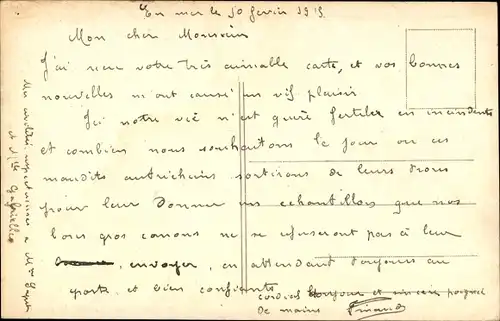 En mer le 10 fevrier 1915
Mon cher Monsieur
J'ai reçu votre très aimable carte, et vos bonnes
nouvelles m'ont causé un vif plaisir
Ici notre vie n'est guère fertile en incidents
et combien nous souhaitons le jour ou ces
maudits autrichiens sortirons de leurs trous
pour leur donner les echantillons que nos
bons gros canons ne se refuseront pas à leur
envoyer, en attendant toujours au
poste et bien confiants
cordial bonjour et sincère poignée
de mains
Mes civilités respectueuses a Mme
et Mlle Gabrielle